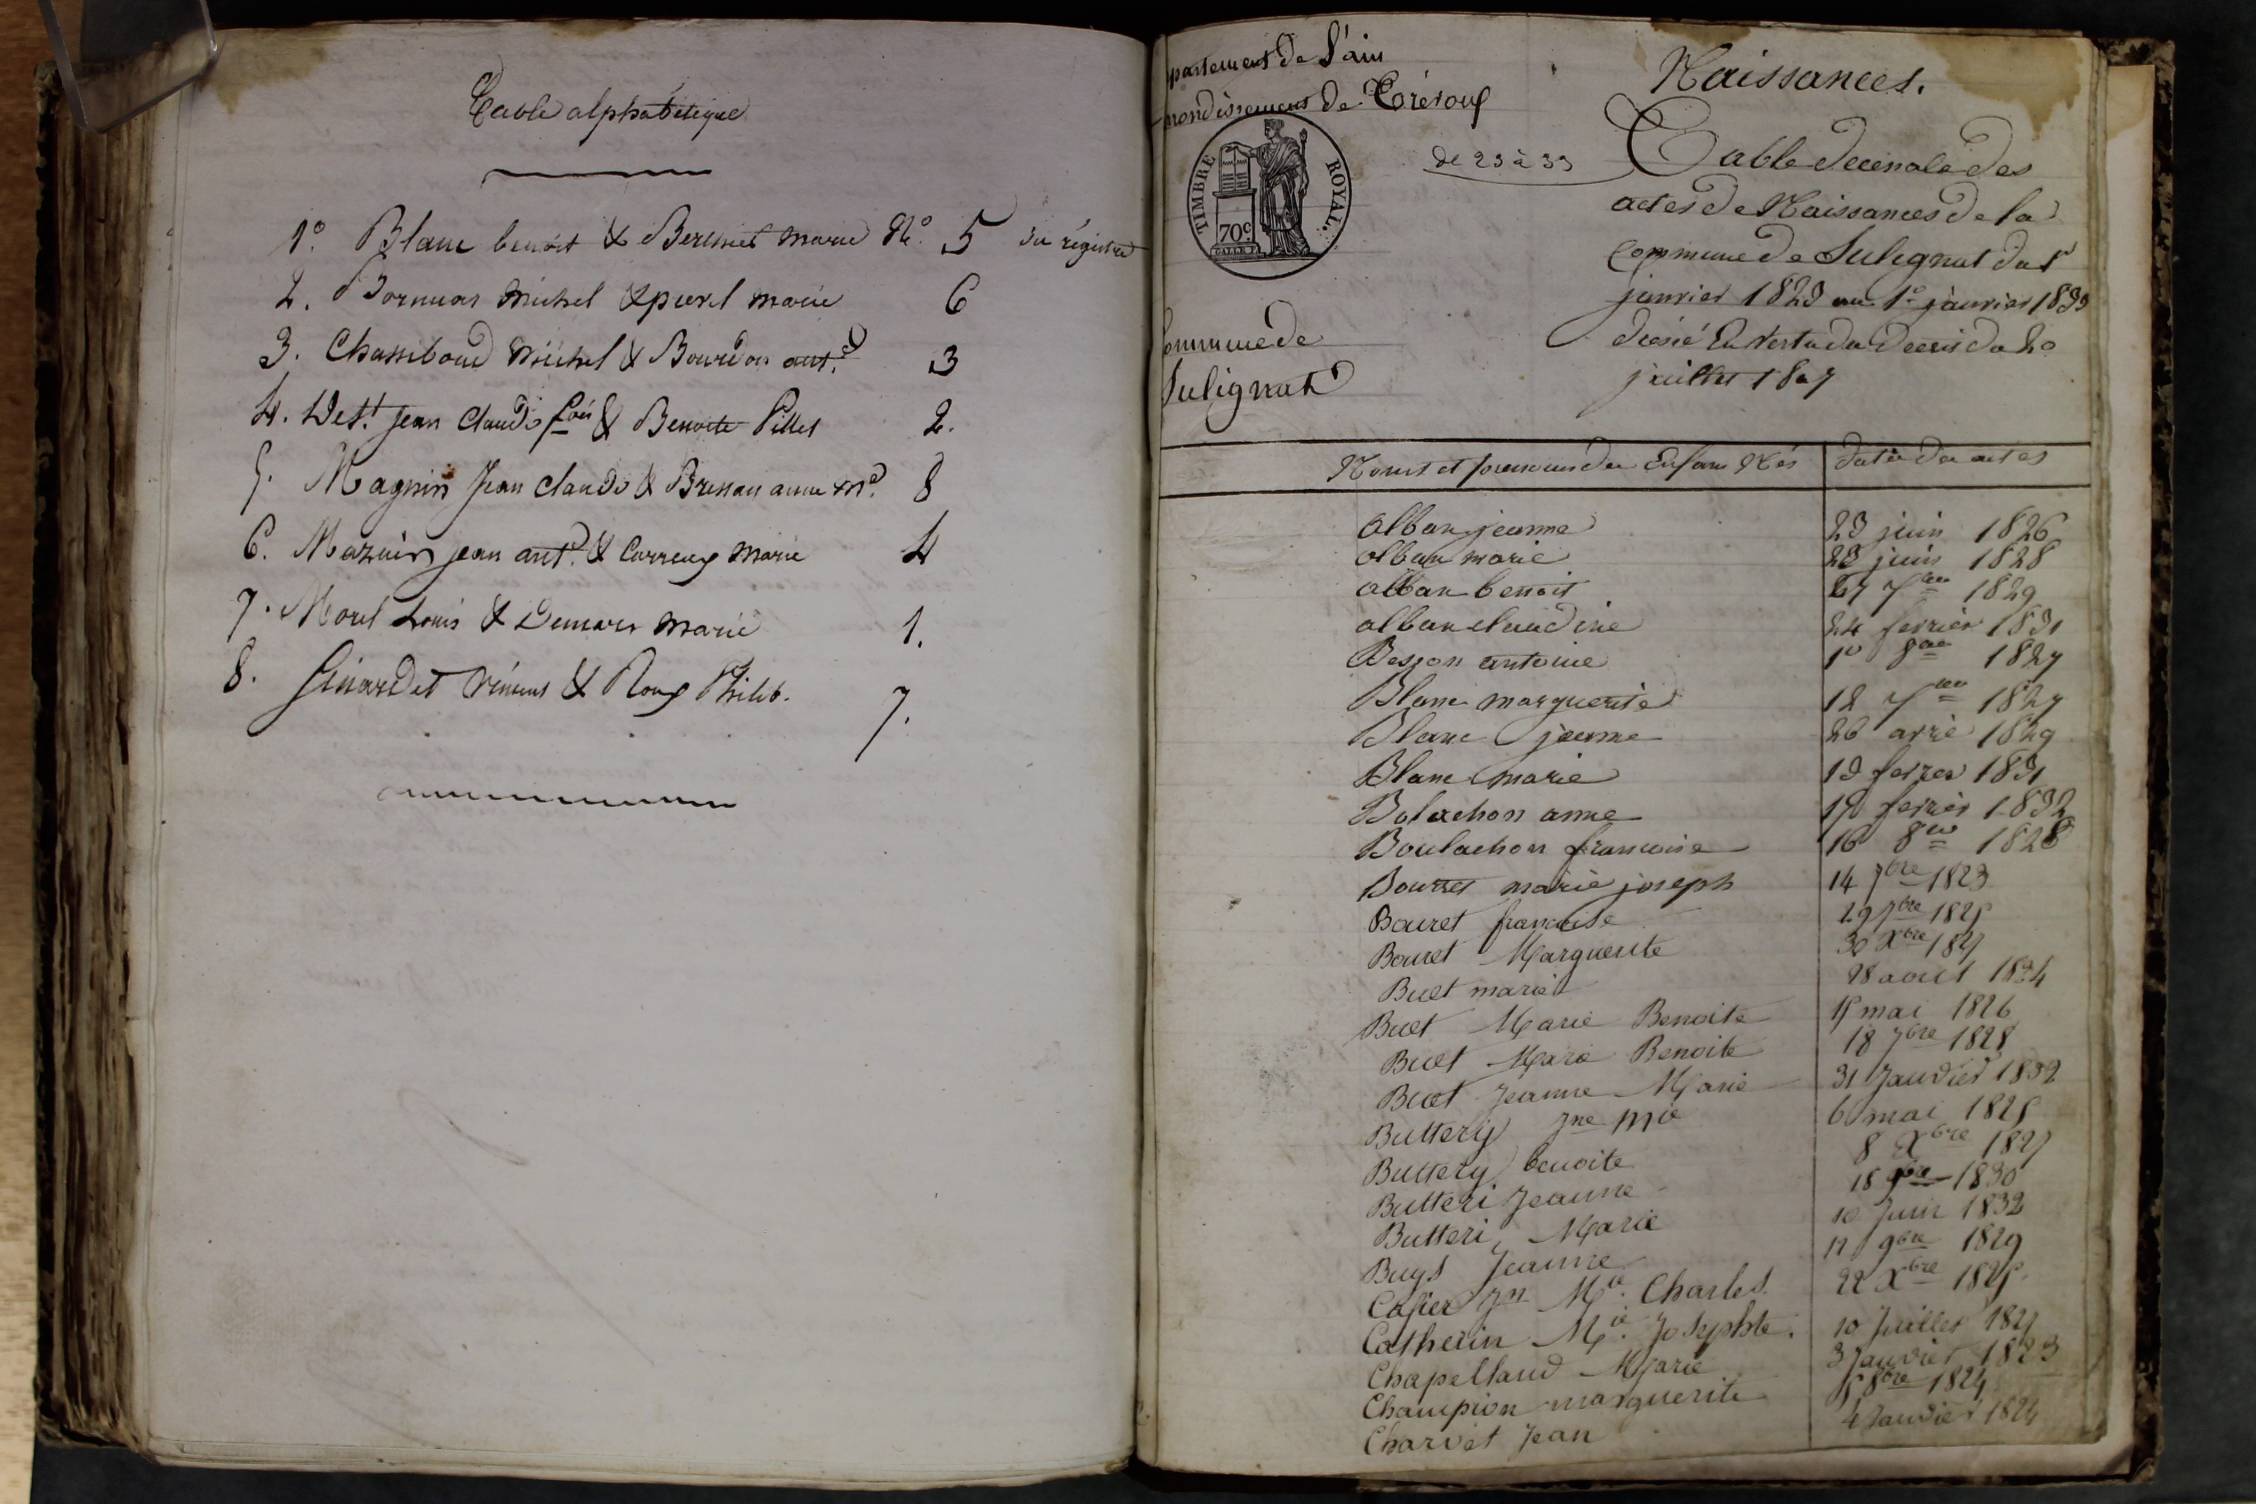 Table alphabétique
1º. Blanc benoit & Berthet marie Nº. 5 du régistre
2. Michel & marie 6
3. Michel & Bourdon ant.e 3
4. Jean Claude & Benoite Pillet 2.
5. Magnin Jean Claude & anne me. 8
6. Mazuir jean ant.e & Carreux Marie 4
7. Morel Louis & Demares Marie 1.
8. Girardet & Roux Philib. 7.
partement de l'ain
rondissement de Trévoux
TIMBRE ROYAL
70c.
de 23 à 33
ommune de
Sulignat
Naissances.
Table decenale des
actes de Naissances de la
commune de Sulignat du 1r
janvier 1823 au 1er janvier 1833
dressé En Vertu du Decret du 20
juillet 1807
Noms et prenoms des Enfans Nés date des actes
alban jeanne 23 juin 1826
alban marie 28 juin 1828
alban benoit 27 7bre 1829
alban claudine 24 fevrier 1831
Besson antoine 10 8bre 1827
Blanc marguerite 12 7bre 1827
Blanc jeanne 26 1829
Blanc marie 13 1831
Bolachon anne 1832
Boulachon francoise 16 8bre 1828
Bourret marie joseph 14 7bre 1823
Bouret francoise 29 7bre 1825
Bouret Marguerite 30 Xbre 1827
Buet marie 28 aout 1824
Buet Marie Benoite 15 mai 1826
Buet Marie Benoite 18 7bre 1828
Buet Jeanne Marie 31 Janvier 1832
Buttery Jne Mie 6 mai 1825
Buttery benoite 8 Xbre 1827
Butteri Jeanne 18 1830
Butteri Marie 10 Juin 1832
Buys Jeanne 12 9bre 1829
Cafier Jn Mie. Charles 22 Xbre 1825.
Catherin Mie. Josephte. 10 Juillet 1827
Chapelland Marie 3 Janvier 1823
Champion marguerite 5 8bre 1824
Charvet Jean 4 Janvier 1824